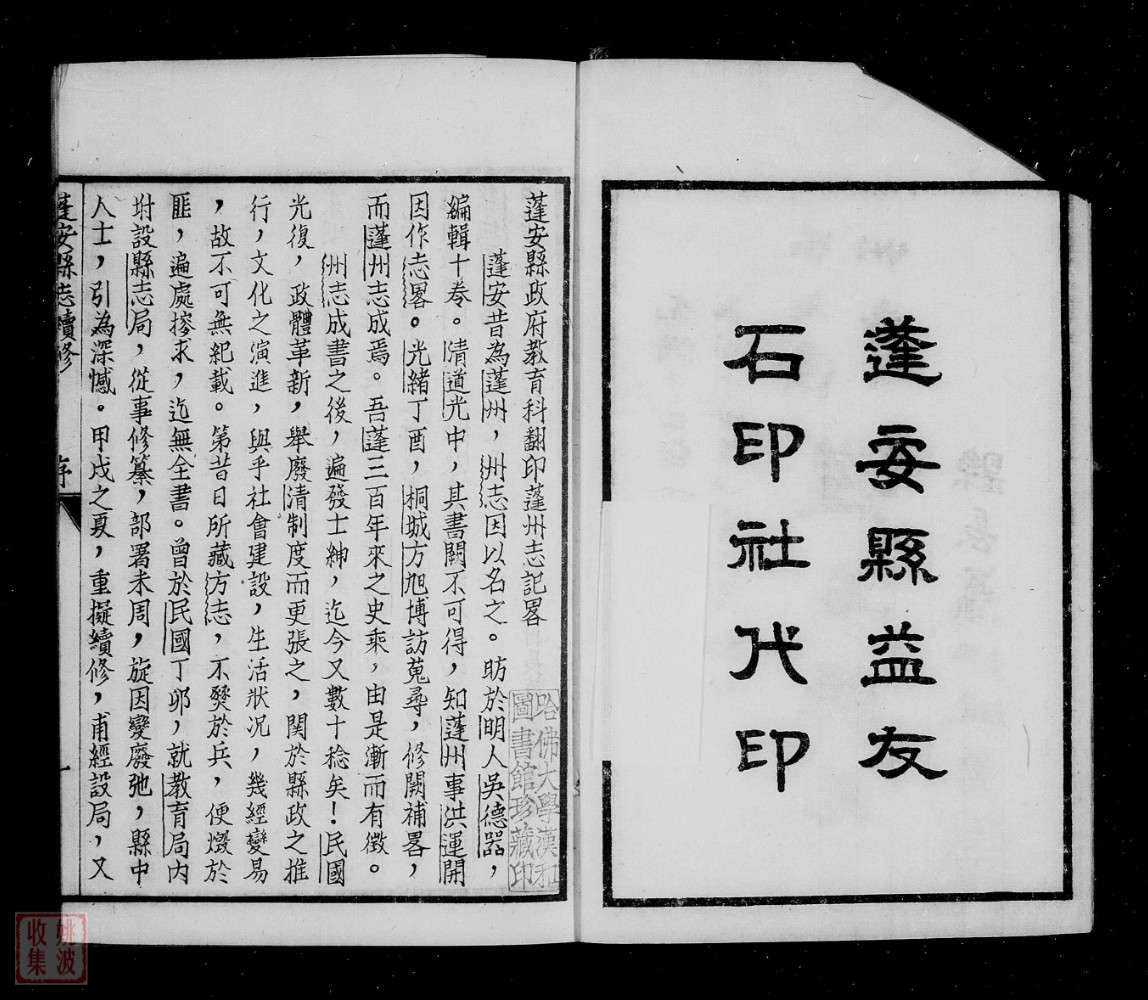 蓬安縣益友
石印社代印
蓬安縣政府教育科翻印蓬州志記畧
蓬安昔為蓬州，州志因以名之。昉於明人吳德器，
編輯十卷。清道光中，其書闕不可得，知蓬州事洪運開
因作志畧。光緒丁酉，桐城方旭博訪蒐尋，修闕補畧，
而蓬州志成焉。吾蓬三百年來之史乘，由是漸而有徵。
州志成書之後，遍發士紳，迄今又數十稔矣！民國
光復，政體革新，舉廢清制度而更張之，関於縣政之推
行，文化之演進，與乎社會建設，生活狀况，幾經變易
，故不可無紀載。第昔日所藏方志，不燹於兵，便燬於
匪，遍處搽求，迄無全書。曾於民國丁卯，就教育局内
坿設縣志局，從事修纂，部署未周，旋因變廢弛，縣中
人士，引為深憾。甲戌之夏，重擬續修，甫經設局，又
蓬安縣志續修 序 一
哈佛大學漢和
圖書館珍藏印
姚波
收集